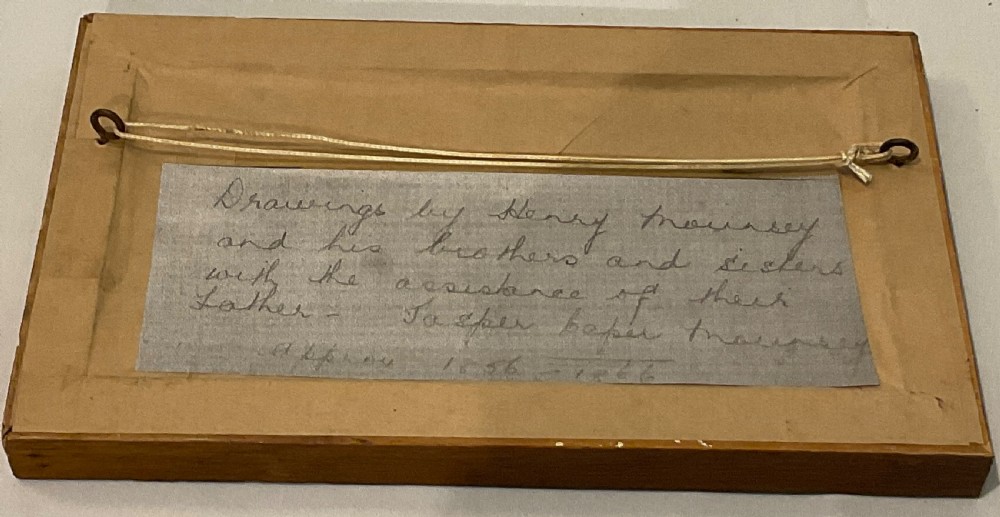 Drawings by Henry Mounsey
and his brothers and sisters
with the assistance of their
Father - Jasper Capper Mounsey
Approx 1856 - 1866